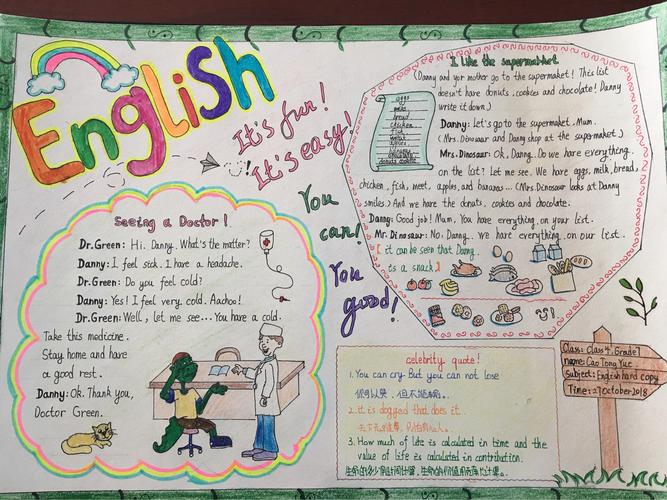 English
It's fun!
It's easy!
You
can!
You
good!
Seeing a Doctor!
Dr.Green: Hi. Danny. What's the matter?
Danny: I feel sick. I have a headache.
Dr.Green: Do you feel cold?
Danny: Yes! I feel very cold. Aachoo!
Dr.Green: Well, let me see... You have a cold.
Take this medicine.
Stay home and have
a good rest.
Danny: Ok. Thank you,
Doctor Green.
I like the supermarket
(Danny and yor mother go to the supermaket! This list
doesn't have donuts, cookies and chocolate! Danny
write it down.)
eggs
bread
chicken
fish
Danny: Let's go to the supermarket, Mum.
(Mrs. Dinosaur and Danny shop at the supermarket.)
Mrs. Dinosaur: Ok, Danny. Do we have everything
on the list? Let me see. We have eggs, milk, bread,
chicken, fish, meet, apples, and bananas... (Mrs. Dinosaur looks at Danny
smiles.) And we have the donuts, cookies and chocolate.
Danny: Good job! Mum, You have everything on your list.
Mr. Dinosaur: No, Danny. We have everything on our list.
( it can be seen that Danny
is a snack)
celebrity quote!
1. You can cry. But you can not lose
你可以哭，但不能输。
2. it is dogged that does it.
3. How much of life is calculated in time and the
value of life is calculated in contribution.
Class: Class 4, Grade 1
name: Cao Tong Yue
Subject: English hard copy
Time: 27 October 2018